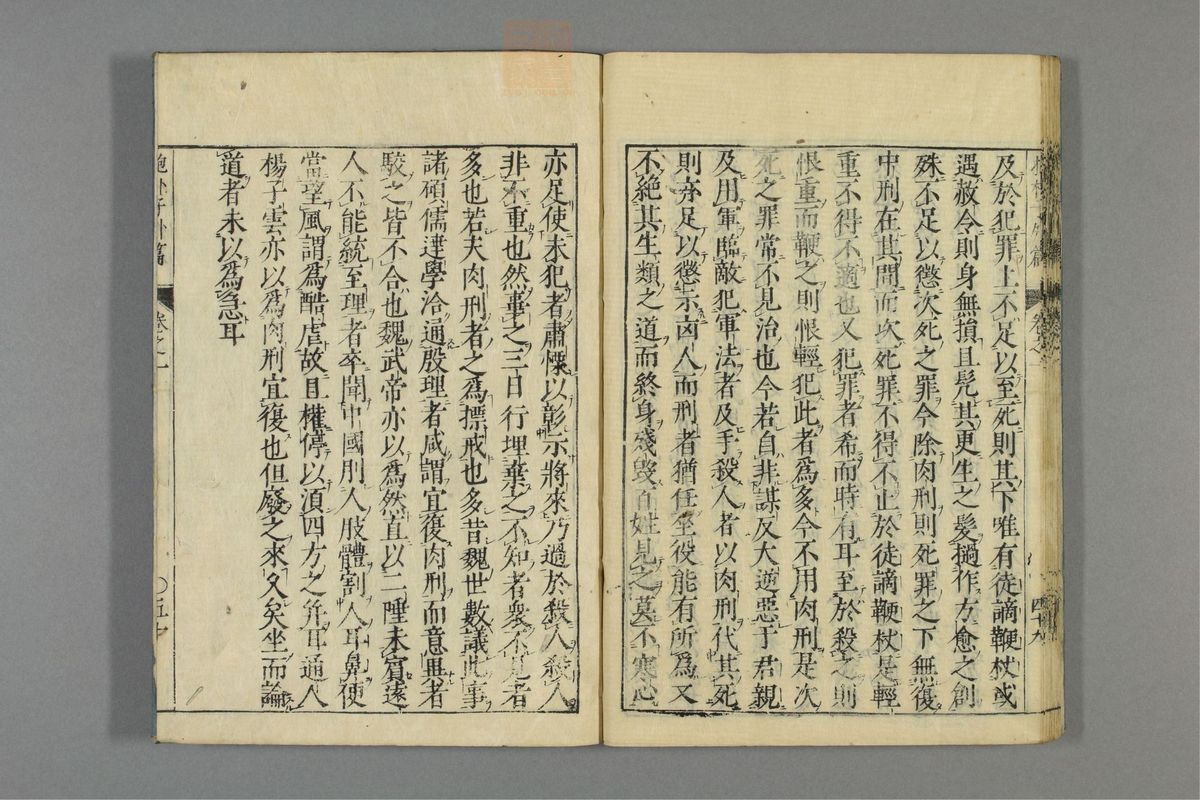 及於犯罪上不足以至死則其下唯有徒謫鞭杖或
遇赦令則身無損且髠其更生之髮撾作方愈之創
殊不足以懲次死之罪今除肉刑則死罪之下無復
中刑在其間而次死罪不得不止於徒謫鞭杖是輕
重不得不適也又犯罪者希而時有耳至於殺之則
恨重而鞭之則恨輕犯此者為多今不用肉刑是次
死之罪常不見治也今若自非謀反大逆惡于君親
及用軍臨敵犯軍法者及手殺人者以肉刑代其死
則亦足以懲示凶人而刑者猶任坐役能有所為又
不絶其生類之道而終身殘毀百姓見之莫不寒心
四十九
亦足使未犯者肅慄以彰示將來乃過於殺人殺人
非不重也然事之三日行埋棄之不知者衆不見者
多也若夫肉刑者之為摽戒也多昔魏世數議此事
諸碩儒達學洽通殷理者咸謂宜復肉刑而意異者
駮之皆不合也魏武帝亦以為然直以二陲未賓遠
人不能統至理者卒聞中國刖人肢體割人耳鼻便
當望風謂為酷虐故且權停以須四方之并耳通人
楊子雲亦以為肉刑宜復也但廢之來久矣坐而論
道者未以為急耳
抱朴子外篇 卷之一 〇五十